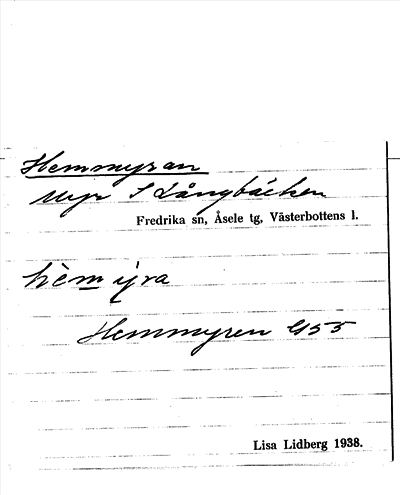 Hemmyran
myr S Långbäcken
Fredrika sn, Åsele tg, Västerbottens l.
hèm
Hemmyren G55
Lisa Lidberg 1938.